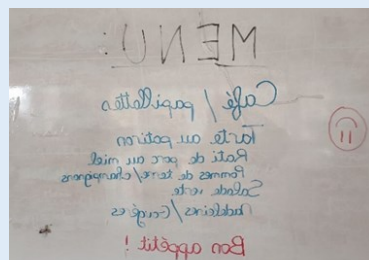 MENU:
Café / papillottes
Tarte au potiron
Roti de porc au miel
Pommes de terre/champignons
Salade verte
Madeleines/Gougères
Bon appétit !